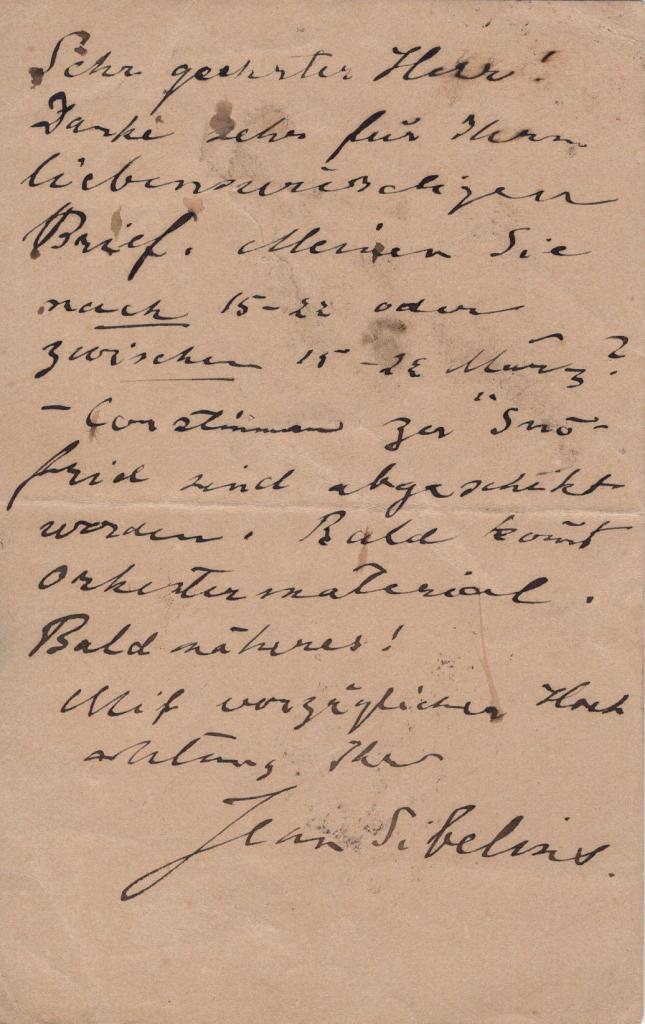 Sehr geehrter Herr!
Danke sehr für Ihren
liebenswürdigen
Brief. Meinen Sie
nach 15-22 oder
zwischen 15-22 März?
- Corstimmen zu "Snö-
frid sind abgeschikt
worden. Bald komt
Orkestermaterial.
Bald näheres!
Mit vorzüglicher Hoch
achtung Ihr
Jean Sibelius.